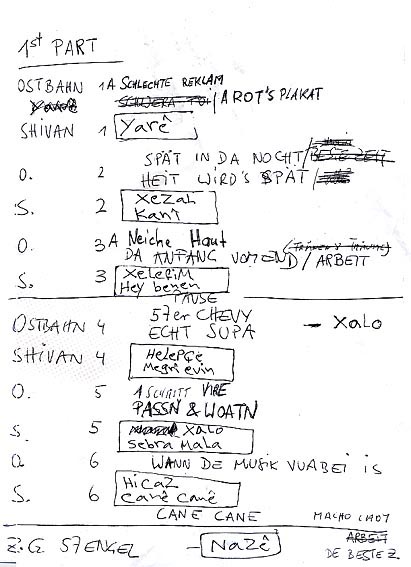 1st PART
OSTBAHN 1 A SCHLECHTE REKLAM
/ A ROT'S PLAKAT
SHIVAN 1 Yarê
O. 2 SPÄT IN DA NOCHT / BESTE ZEIT
HEIT WIRD'S SPÄT /
S. 2 xezal
Kanî
O. 3 A Neiche Haut
DA ANFANG VOM END / ARBEIT
S. 3 Xelefim
Hey bezen
PAUSE
OSTBAHN 4 57er CHEVY
ECHT SUPA - Xalo
SHIVAN 4 HeLePÇe
Megri evin
O. 5 A SCHRITT VIRE
PASSN & WOATN
S 5 XALO
Sebra Mala
O. 6 WANN DE MUSIK VUABEI IS
S. 6 HiCaZ
Canê Canê
CANE CANE MACHO
ARBEIT
Z.G. STENGEL - NaZê
DE BESTE Z.